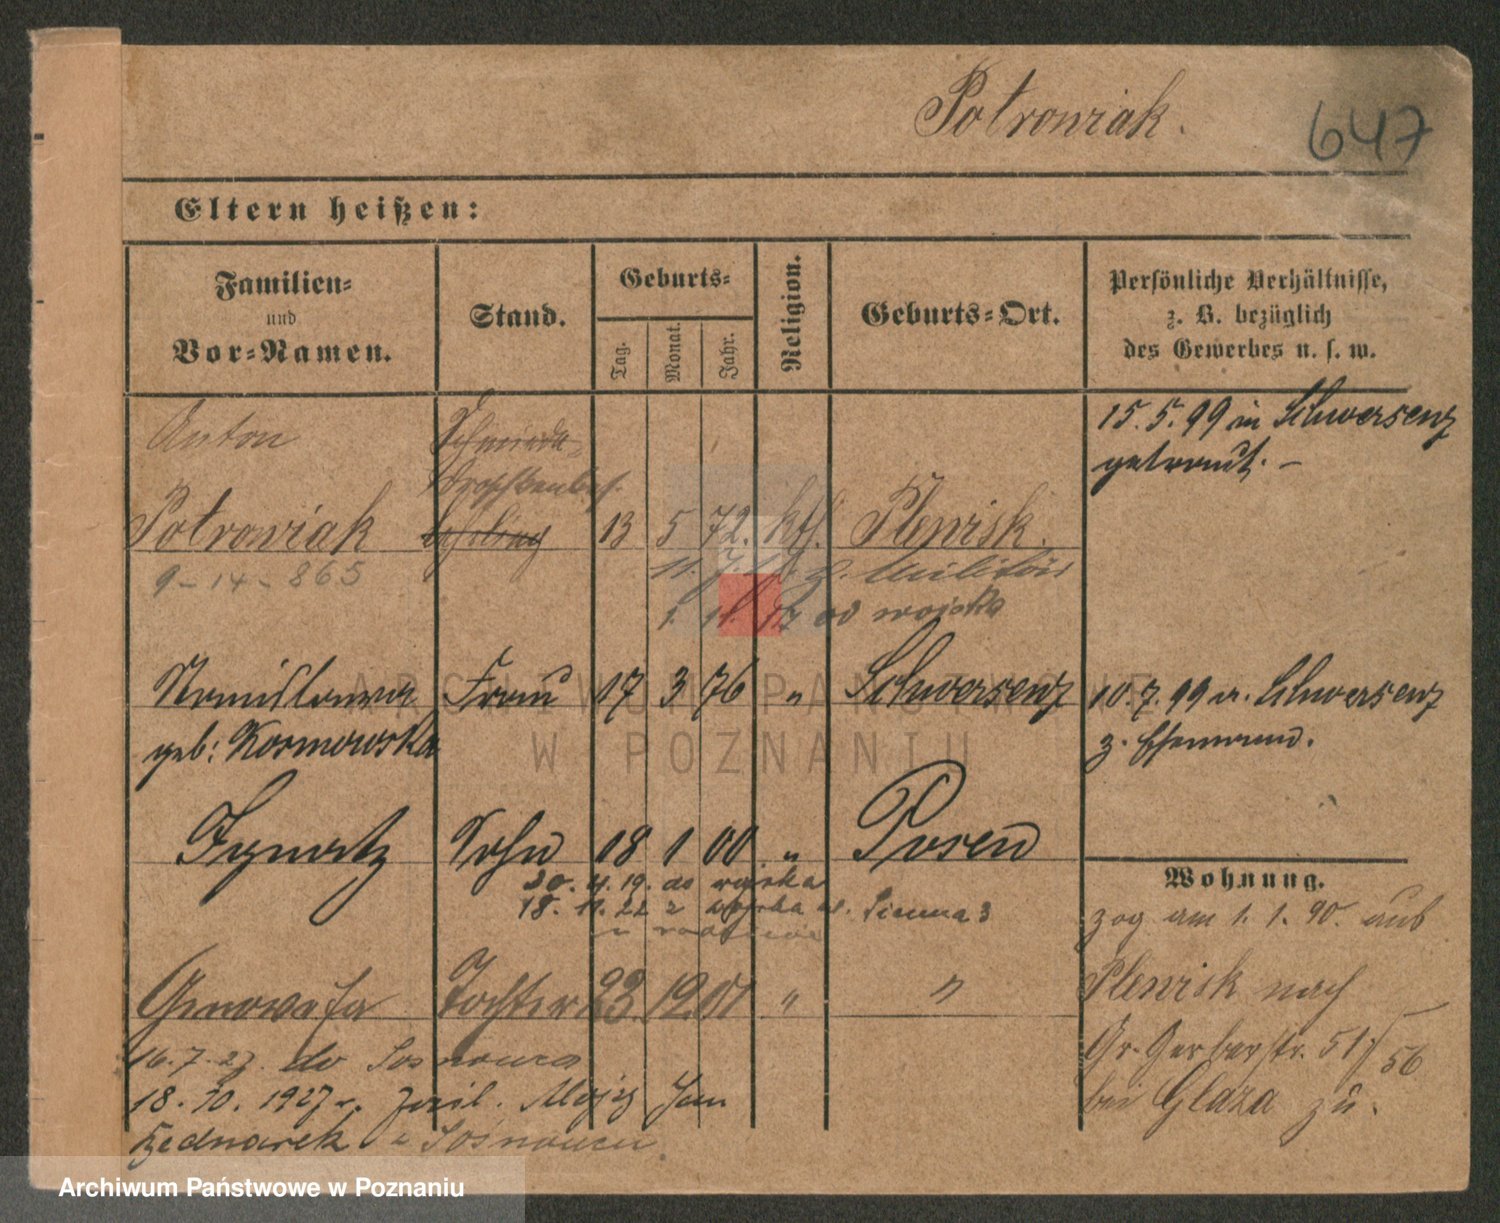 Potrowiak.
647
Eltern heißen:
Familien-
und
Vor-Namen.
Stand.
Geburts-
Tag.
Monat.
Jahr.
Religion.
Geburts-Ort.
Persönliche Verhältnisse,
z. B. bezüglich
des Gewerbes u. s. w.
Anton
15. 5. 99 in Schwersenz
getraut. –
Potrowiak 13 5 72. kth. Plewisk.
9 - 14 - 865
11. 7. z. Militär
1. 11. 17 od wojska
Stanislawa Frau 17 3 76 " Schwersenz
geb: Kosmowska
10. 7. 99 a. Schwersenz
z. Ehemann.
Ignatz Sohn 18 1 00 " Posen
20. 4. 19. do wojska
18. 11. 22 z wojska ul. Zimna 3
Wohnung.
zog am 1. 1. 90. aus
Plewisk nach
Gr. Gerberstr. 51/56
bei Glaza zu.
Genowefa Tochter 23. 12. 01 " "
16. 7. 27. do Sosnowca
18. 10. 1927 r. Alojzy Jan
Bednarek z Sosnowca.
ARCHIWUM PAŃSTWOWE
W POZNANIU
Archiwum Państwowe w Poznaniu